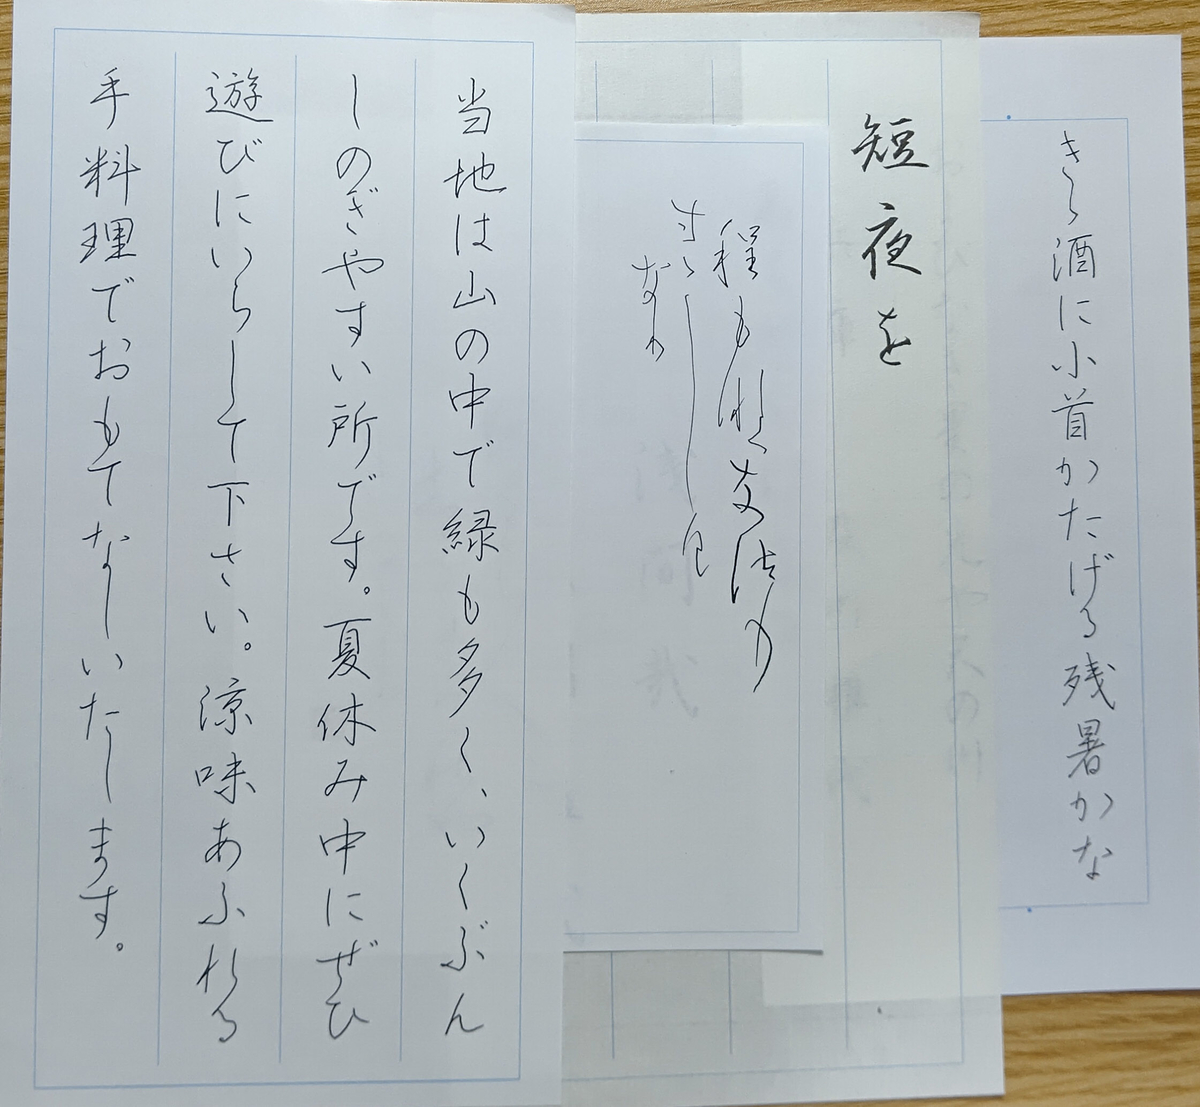 きゝ酒に小首かたげる残暑かな
短夜を
当地は山の中で緑も多く、いくぶん
しのぎやすい所です。夏休み中にぜひ
遊びにいらして下さい。涼味あふれる
手料理でおもてなしいたします。